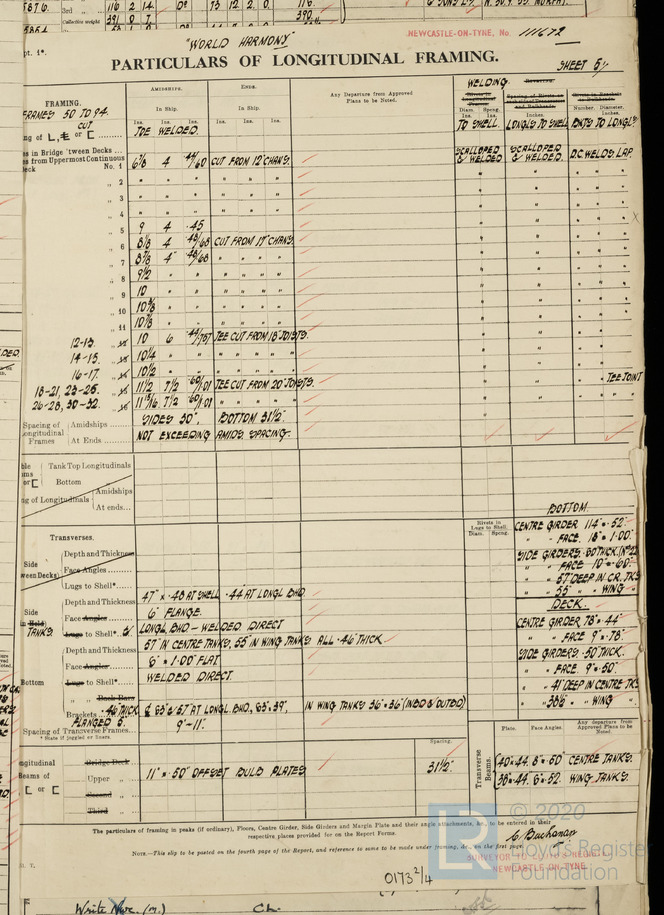 5876. 3rd 116 2 14. 0° 13 12. 2. 0. 116.
Collective weight 391 0 7. 390
NEWCASTLE-ON-TYNE, No. 111672
"WORLD HARMONY"
pt. 1*.
PARTICULARS OF LONGITUDINAL FRAMING. SHEET 5/-
FRAMING. AMIDSHIPS. ENDS. Any Departure from Approved Plans to be Noted. WELDING.
FRAMES 50 TO 94. In Ship. In Ship.
CUT Ins. Ins. Ins. Ins. Ins. Ins. Diam. Spcng. Inches. Number. Diameter.
ng of L, or [ TOE WELDED. TO SHELL. LONGLS TO SHELL BKTS TO LONGLS
es in Bridge 'tween Decks ...
s from Uppermost Continuous SCALLOPED & WELDED. SCALLOPED & WELDED. D.C. WELDS. LAP.
Deck No. 1 6 7/8 4 44/60 CUT FROM 12" CHANS.
" 2 " " " " " "
" 3 " " " " " "
" 4 " " " " " "
" 5 9 4 .45
" 6 8 1/8 4 48/68 CUT FROM 17" CHANS.
" 7 8 7/8 4" 48/68 " " " "
" 8 9 1/2 " " " " " "
" 9 10 " " " " " "
" 10 10 3/8 " " " " " "
" 11 10 7/8 " " " " " "
12-13. 10 6 TEE CUT FROM 18" JOISTS.
14-15. 10 1/4 " " " " " "
16-17. 10 1/2 " " " " " "
18-21, 23-25. 11 1/2 7 1/2 60/1.01 TEE CUT FROM 20" JOISTS. TEE JOINT
26-28, 30-32. 11 15/16 7 1/2 60/1.01 " " " "
Spacing of Longitudinal Frames Amidships SIDES 30", BOTTOM 31 1/2".
At Ends NOT EXCEEDING AMIDS. SPACING.
Tank Top Longitudinals
or [ Bottom "
ng of Longitudinals Amidships
At ends...
BOTTOM.
Rivets in Lugs to Shell. CENTRE GIRDER 114" × .52"
Transverses. Diam. Spcng. " " FACE. 18" × 1.00"
Side Depth and Thickness SIDE GIRDERS .50 THICK.
ween Decks) Face Angles " " FACE 10" × .60"
Lugs to Shell*... " " 57" DEEP IN CR. TKS
Depth and Thickness 47" × .48 AT SHELL .44 AT LONGL BHD. " " 55" " " WING "
Side Face Angles 6" FLANGE. DECK.
TANKS. Lugs to Shell* & LONGL BHD - WELDED DIRECT CENTRE GIRDER 78" × .44"
Depth and Thickness 57" IN CENTRE TANKS, 55" IN WING TANKS ALL .46 THICK " " FACE 9" × .78"
Face Angles 6" × 1.00" FLAT SIDE GIRDERS .50 THICK.
Bottom Lugs to Shell*. WELDED DIRECT. " " FACE 9" × .50"
" " Back Bars " 41" DEEP IN CENTRE TKS
Brackets .46 THICK ₵ 63" & 57" AT LONGL. BHD., 63", 39", IN WING TANKS 36" × 36" (INBD & OUTBD) " 38 1/2" " WING "
FLANGED 5".
Spacing of Transverse Frames. 9'-11".
* State if joggled or liners.
Plate. Face Angles. Any departure from Approved Plans to be Noted.
Spacing.
ngitudinal Bridge Deck
Beams of Upper " 11" × .50" OFFSET BULB PLATES. 31 1/2". Transverse Beams. 40" × .44 6" × .50 CENTRE TANKS.
[ or [ Second " 38" × .44 6" × .52 WING TANKS.
Third "
The particulars of framing in peaks (if ordinary), Floors, Centre Girder, Side Girders and Margin Plate and their angle attachments, &c., to be entered in their
respective places provided for on the Report Forms.
C. Buchanan
NOTE.—This slip to be posted on the fourth page of the Report, and reference to same to be made under framing, &c., on the first page.
SURVEYOR TO LLOYD'S REGISTER
NEWCASTLE-ON-TYNE.
© 2020
Lloyd's Register
Foundation
LR
0173 2/4
Write Nwc. (M.) Ch.